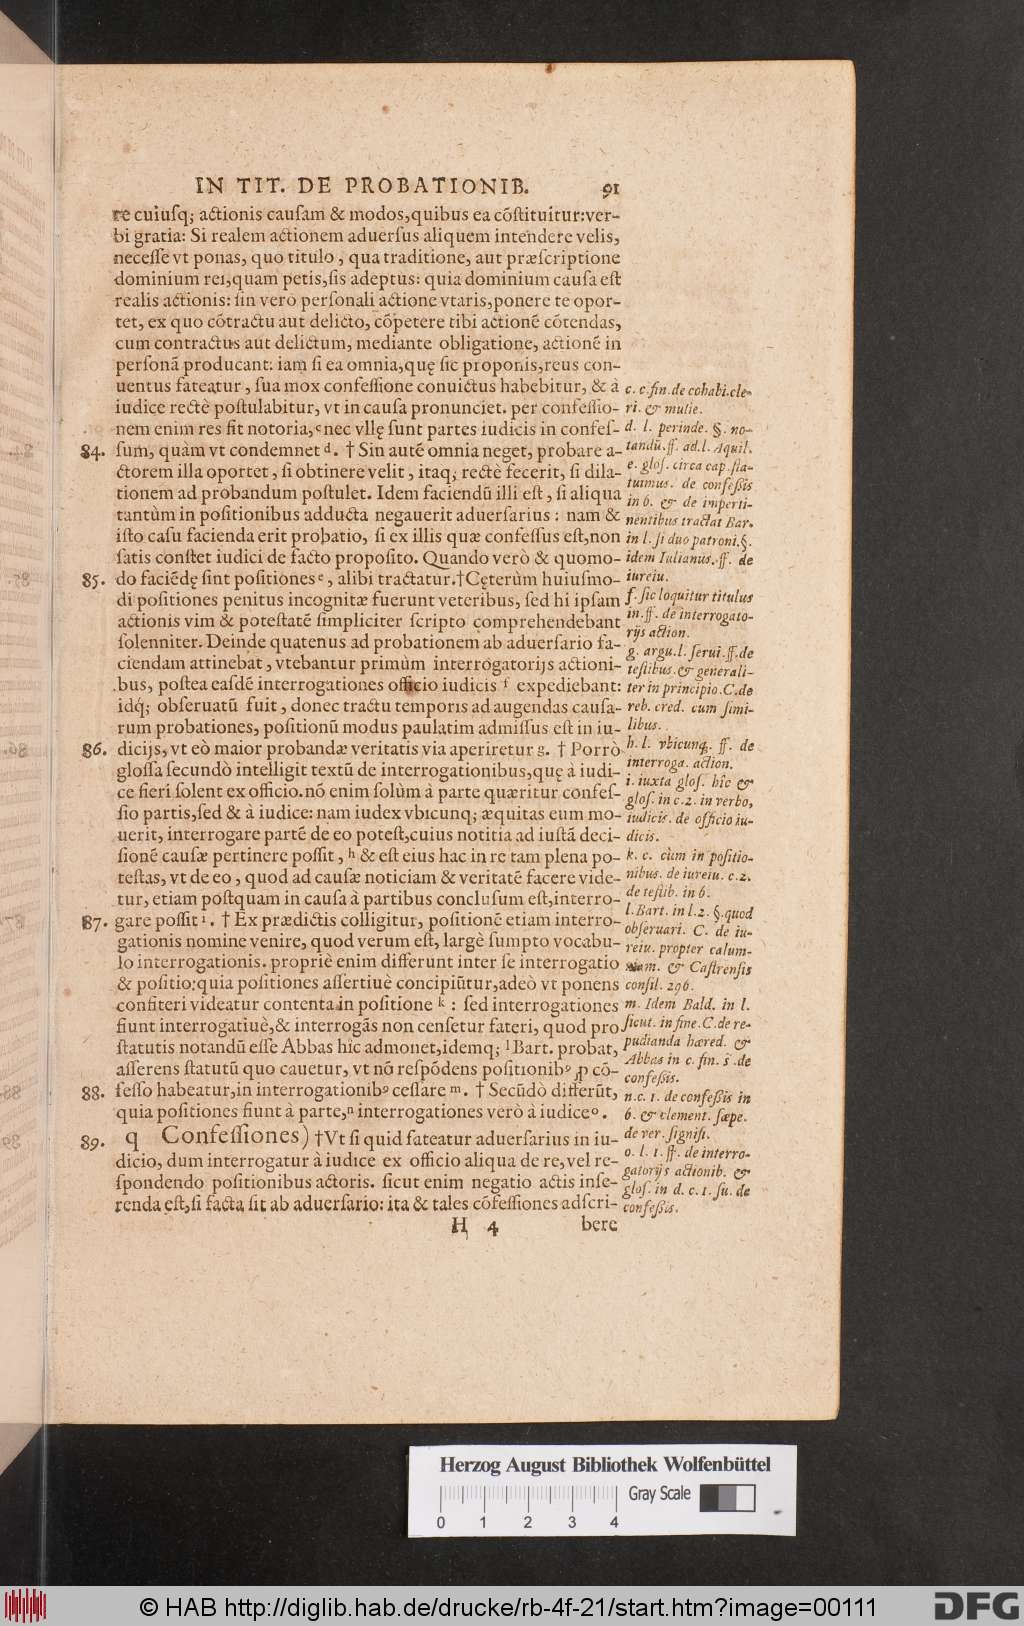 IN TIT. DE PROBATIONIB. 91
re cuiuſq; actionis cauſam & modos,quibus ea cõſtituitur:ver-
bi gratia: Si realem actionem aduerſus aliquem intendere velis,
neceſſe vt ponas, quo titulo , qua traditione, aut præſcriptione
dominium rei,quam petis,ſis adeptus: quia dominium cauſa eſt
realis actionis: ſin verò perſonali actione vtaris,ponere te opor-
tet, ex quo cõtractu aut delicto, cõpetere tibi actionẽ cõtendas,
cum contractus aut delictum, mediante obligatione, actionẽ in
perſonã producant: iam ſi ea omnia,quę ſic proponis,reus con-
uentus fateatur , ſua mox confeſſione conuictus habebitur, & à
iudice rectè poſtulabitur, vt in cauſa pronunciet. per confeſſio-
nem enim res fit notoria,ᶜ nec vllę ſunt partes iudicis in confeſ-
84. ſum, quàm vt condemnet ᵈ. † Sin autẽ omnia neget, probare a-
ctorem illa oportet , ſi obtinere velit , itaq; rectè fecerit, ſi dila-
tionem ad probandum poſtulet. Idem faciendũ illi eſt , ſi aliqua
tantùm in poſitionibus adducta negauerit aduerſarius : nam &
iſto caſu facienda erit probatio, ſi ex illis quæ confeſſus eſt,non
ſatis conſtet iudici de facto propoſito. Quando verò & quomo-
85. do faciẽdę ſint poſitiones ᵉ, alibi tractatur.†Cęterùm huiuſmo-
di poſitiones penitus incognitæ fuerunt veteribus, ſed hi ipſam
actionis vim & poteſtatẽ ſimpliciter ſcripto comprehendebant
ſolenniter. Deinde quatenus ad probationem ab aduerſario fa-
ciendam attinebat , vtebantur primùm interrogatorijs actioni-
bus, poſtea eaſdẽ interrogationes officio iudicis ᶠ expediebant:
idq; obſeruatũ fuit , donec tractu temporis ad augendas cauſa-
rum probationes, poſitionũ modus paulatim admiſſus eſt in iu-
86. dicijs, vt eò maior probandæ veritatis via aperiretur g. † Porrò
gloſſa ſecundò intelligit textũ de interrogationibus,quę à iudi-
ce fieri ſolent ex officio.nõ enim ſolùm à parte quæritur confeſ-
ſio partis,ſed & à iudice: nam iudex vbicunq; æquitas eum mo-
uerit, interrogare partẽ de eo poteſt,cuius notitia ad iuſtã deci-
ſionẽ cauſæ pertinere poſſit , ʰ & eſt eius hac in re tam plena po-
teſtas, vt de eo , quod ad cauſæ noticiam & veritatẽ facere vide-
tur, etiam poſtquam in cauſa à partibus concluſum eſt,interro-
87. gare poſſit ⁱ. † Ex prædictis colligitur, poſitionẽ etiam interro-
gationis nomine venire, quod verum eſt, largè ſumpto vocabu-
lo interrogationis. propriè enim differunt inter ſe interrogatio
& poſitio:quia poſitiones aſſertiuè concipiũtur,adeò vt ponens
confiteri videatur contenta in poſitione ᵏ : ſed interrogationes
fiunt interrogatiuè,& interrogãs non cenſetur fateri, quod pro
ſtatutis notandũ eſſe Abbas hîc admonet,idemq; ˡ Bart. probat,
aſſerens ſtatutũ quo cauetur, vt nõ reſpõdens poſitionibꝰ ꝓ cõ-
88. feſſo habeatur,in interrogationibꝰ ceſſare ᵐ. † Secũdò differũt,
quia poſitiones fiunt à parte,ⁿ interrogationes verò à iudice º.
89. q Confeſſiones) †Vt ſi quid fateatur aduerſarius in iu-
dicio, dum interrogatur à iudice ex officio aliqua de re,vel re-
ſpondendo poſitionibus actoris. ſicut enim negatio actis inſe-
renda eſt,ſi facta ſit ab aduerſario: ita & tales cõfeſſiones adſcri-
H 4 bere
c. c. fin. de cohabi. cle-
ri. & mulie.
d. l. perinde. §. no-
tandũ. ff. ad. l. Aquil.
e. gloſ. circa cap. ſta-
tuimus. de confeßis
in 6. & de imperti-
nentibus tractat Bar.
in l. ſi duo patroni. §.
idem Iulianus. ff. de
iureiu.
f. ſic loquitur titulus
in. ff. de interrogato-
rijs action.
g. argu. l. ſerui. ff. de
teſtibus. & generali-
ter in principio. C. de
reb. cred. cum ſimi-
libus.
h. l. vbicunq. ff. de
interroga. action.
i. iuxta gloſ. hîc &
gloſ. in c. 2. in verbo,
iudicis. de officio iu-
dicis.
k. c. cùm in poſitio-
nibus. de iureiu. c. 2.
de teſtib. in 6.
l. Bart. in l. 2. §. quod
obſeruari. C. de iu-
reiu. propter calum-
niam. & Caſtrenſis
conſil. 296.
m. Idem Bald. in l.
ſicut. in fine. C. de re-
pudianda hæred. &
Abbas in c. fin. s. de
confeßis.
n. c. 1. de confeßis in
6. & clement. ſæpe.
de ver. ſignifi.
o. l. 1. ff. de interro-
gatorijs actionib. &
gloſ. in d. c. 1. ſu. de
confeßis.
Herzog August Bibliothek Wolfenbüttel
Gray Scale
0 1 2 3 4
© HAB http://diglib.hab.de/drucke/rb-4f-21/start.htm?image=00111
DFG